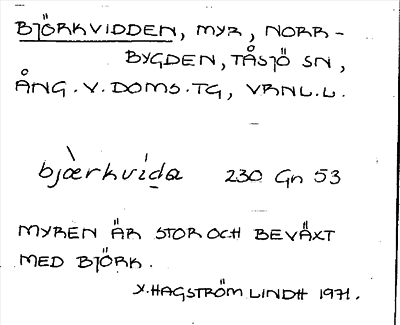 BJÖRKVIDDEN, MYR, NORR-
BYGDEN, TÅSJÖ SN,
ÅNG. V. DOMS. TG, VRNL. L.
bjὰrkvída 230 Gn 53
MYREN ÄR STOR OCH BEVÄXT
MED BJÖRK.
Y. HAGSTRÖM LINDH 1971.